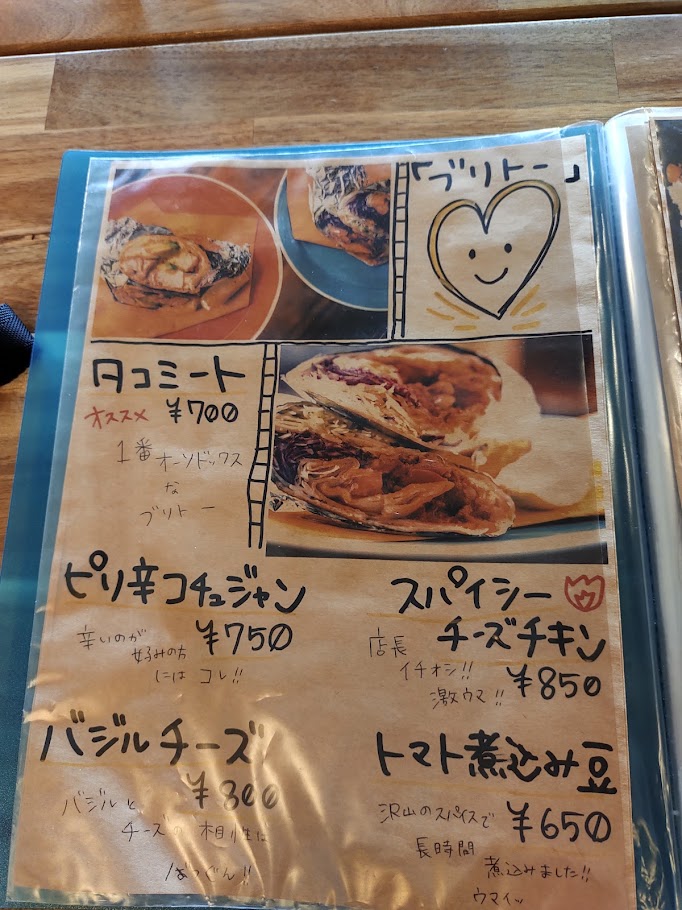 「ブリトー」
タコミート
オススメ ¥700
1番オーソドックス
な
ブリトー
ピリ辛コチュジャン
¥750
辛いのが
好みの方
には コレ!!
スパイシー
チーズチキン
店長
イチオシ!!
激ウマ!!
¥850
バジルチーズ
¥800
バジルと
チーズの相性は
ばつぐん!!
トマト煮込み豆
¥650
沢山のスパイスで
長時間
煮込みました!!
ウマイッ